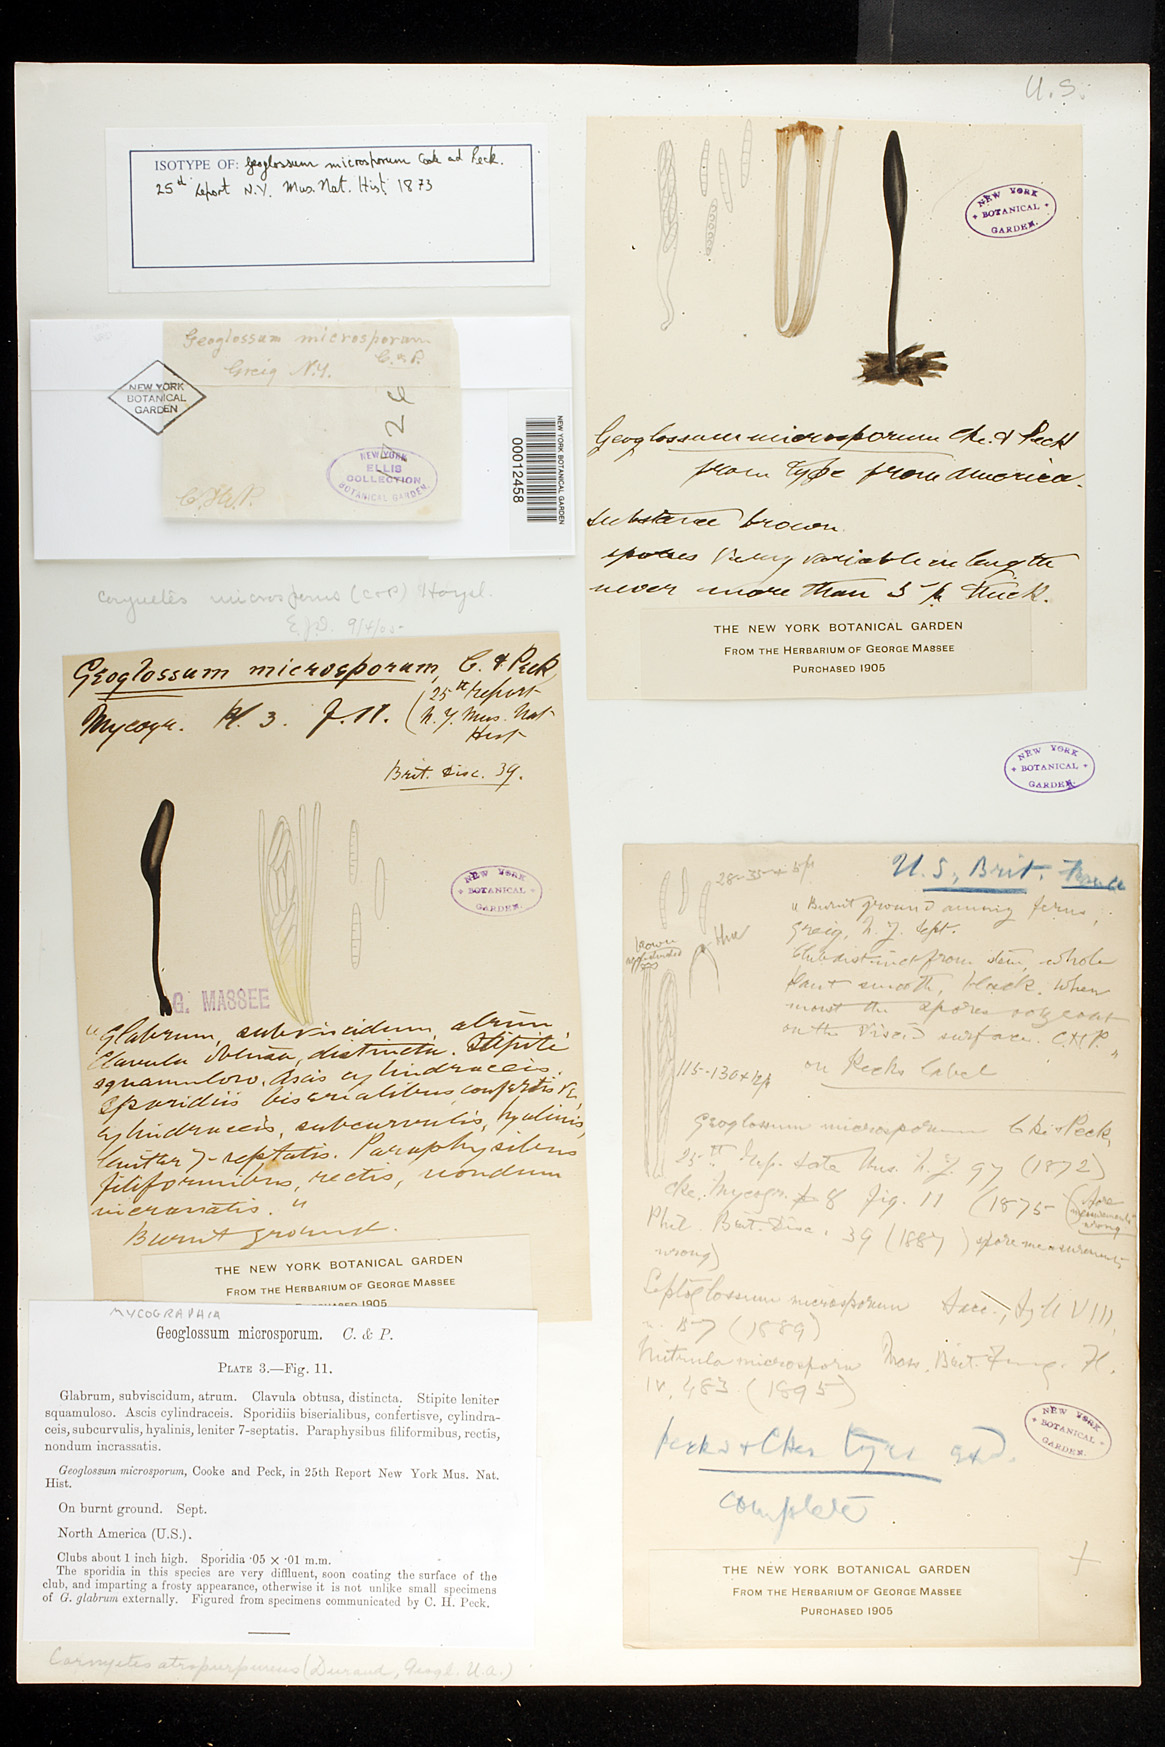 U. S.
ISOTYPE OF: Geoglossum microsporum Cook and Peck.
25th Report N.Y. Mus. Nat. Hist. 1873
NEW YORK
BOTANICAL
GARDEN
Geoglossum microsporum
C. & P.
Greig N.Y.
NEW YORK
BOTANICAL
GARDEN
NEW YORK
ELLIS
COLLECTION
BOTANICAL GARDEN.
C.H.P.
NEW YORK BOTANICAL GARDEN
00012458
Geoglossum microsporum Cke. & Peck
from type from America.
substance brown
spores very variable in length
never more than 5 µ thick.
THE NEW YORK BOTANICAL GARDEN
FROM THE HERBARIUM OF GEORGE MASSEE
PURCHASED 1905
microsporus (C & P)
E.J.D. 9/4/05
NEW YORK
BOTANICAL
GARDEN.
Geoglossum microsporum, C. & Peck
(25th Report
Mycogr. Pl. 3. f. 11.
N. Y. Mus. Nat
Hist
Brit. Disc. 39.
NEW YORK
BOTANICAL
GARDEN.
G. MASSEE
"Glabrum, subviscidum, atrum,
Clavula obtusa, distincta. Stipite
squamuloso. Ascis cylindraceis.
Sporidiis biserialibus, confertisve,
cylindraceis, subcurvulis, hyalinis,
leniter 7-septatis. Paraphysibus
filiformibus, rectis, nondum
incrassatis."
Burnt ground.
THE NEW YORK BOTANICAL GARDEN
FROM THE HERBARIUM OF GEORGE MASSEE
PURCHASED 1905
MYCOGRAPHIA
Geoglossum microsporum. C. & P.
PLATE 3.—FIG. 11.
Glabrum, subviscidum, atrum. Clavula obtusa, distincta. Stipite leniter
squamuloso. Ascis cylindraceis. Sporidiis biserialibus, confertisve, cylindra-
ceis, subcurvulis, hyalinis, leniter 7-septatis. Paraphysibus filiformibus, rectis,
nondum incrassatis.
Geoglossum microsporum, Cooke and Peck, in 25th Report New York Mus. Nat.
Hist.
On burnt ground. Sept.
North America (U.S.).
Clubs about 1 inch high. Sporidia ·05 × ·01 m.m.
The sporidia in this species are very diffluent, soon coating the surface of the
club, and imparting a frosty appearance, otherwise it is not unlike small specimens
of G. glabrum externally. Figured from specimens communicated by C. H. Peck.
(Durand, Geogl. U.A.)
U.S., Brit.
28-35 × 5µ
"Burnt ground among ferns,
Greig, N.Y. Sept.
Club distinct from stem, whole
plant smooth, black. When
moist the spores ooze coat
on the viscid surface. C.H.P."
brown
on Pecks label
Geoglossum microsporum Cke & Peck,
25th Rep. State Mus. N.Y. 97 (1872)
Cke. Mycogr. fig. 11 (1875 (spore
measurements
wrong)
Phil. Brit. Disc. 39 (1887) spore measurements
wrong)
Leptoglossum microsporum Sacc., Syll VIII,
(1889)
Mitrula microspora Mass. Brit. Fung. Fl.
IV, 483 (1895)
Peck & Ckes type
complete
NEW YORK
BOTANICAL
GARDEN.
THE NEW YORK BOTANICAL GARDEN
FROM THE HERBARIUM OF GEORGE MASSEE
PURCHASED 1905